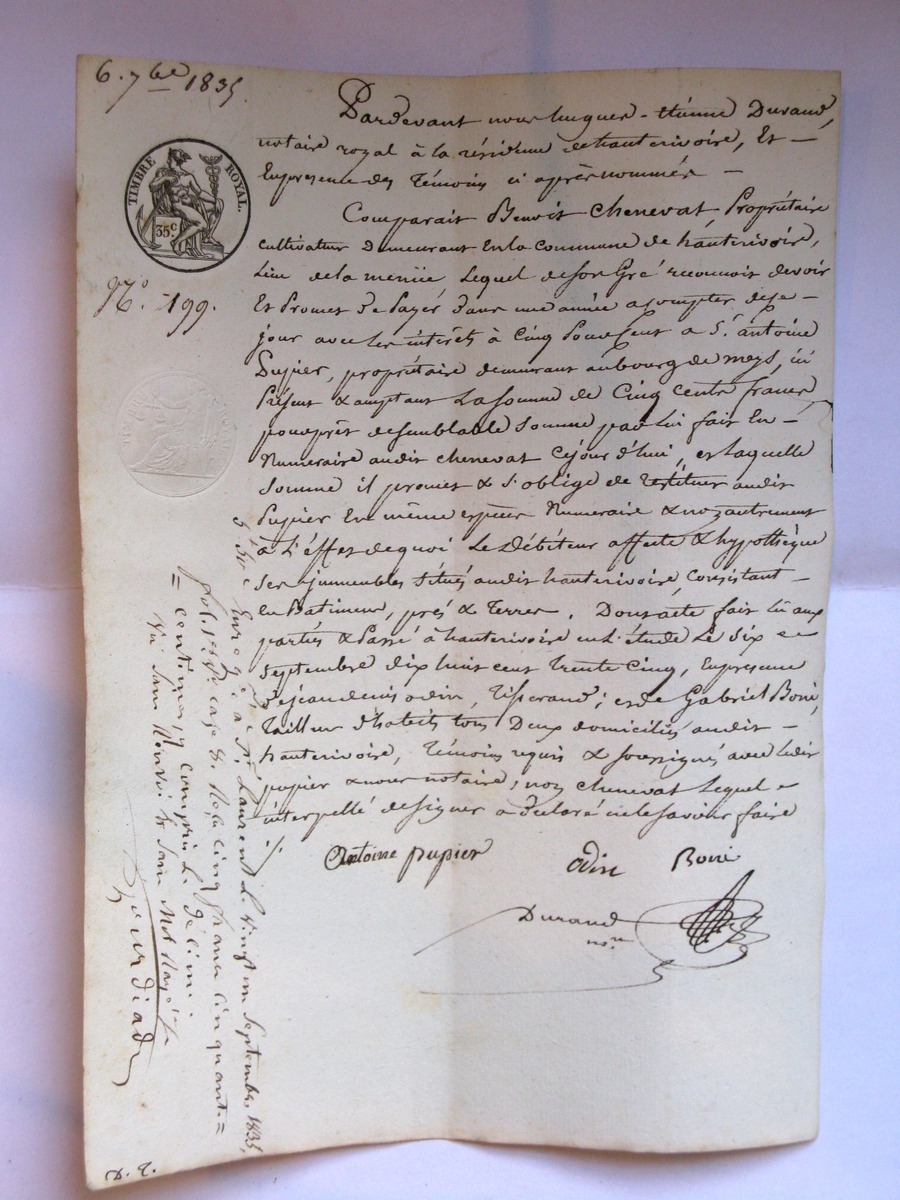 6. 7bre 1835.
TIMBRE ROYAL.
35c
No. 199.
Pardevant nous hugues-étienne Durand,
notaire royal à la résidence de hauterivoire, Et -
Enpresence des témoins ci après nommés -
Comparait Benoit Chenevat, Propriétaire
cultivateur demeurant En la commune de hauterivoire,
Lieu de la Lequel de son Gré reconnoit devoir
Et Promet de Payer dans une année acompter de ce -
jour avec les intérêts à Cinq Pour Cent a Sr. antoine
Pupier, propriétaire demeurant au bourg de meys, ici
Présent & acceptant La somme de Cinq cents francs,
pour prêt de semblable somme par lui fait En -
Numeraire audit chenevat Cejour d'hui, et Laquelle
somme il promet & s'oblige de restituer audit
Pupier En même espèces Numeraire & non autrement
à L'éffet de quoi Le débiteur affecte & hypothèque
ses immeubles situés audit hauterivoire, Consistant -
en Batiment, prés & terres. Dont acte fait Lû aux
parties & Passé à hauterivoire en L'étude Le six
Septembre dix huit cent trente Cinq, En presence
de jean denis odin, tisserand; et de Gabriel Boné,
tailleur d'habits tous Deux domiciliés audit -
hauterivoire, témoins requis & soussignés avec ledit
pupier & nous notaire; non chenevat Lequel -
interpellé de signer a déclaré ne le savoir faire
Antoine pupier odin Boné
Durand
nre
Enregé. à St. Laurent L. vingt un Septembre 1835,
fol. case 8. Reçu cinq francs cinquante =
= centimes, y compris Le décime
Bourdiad